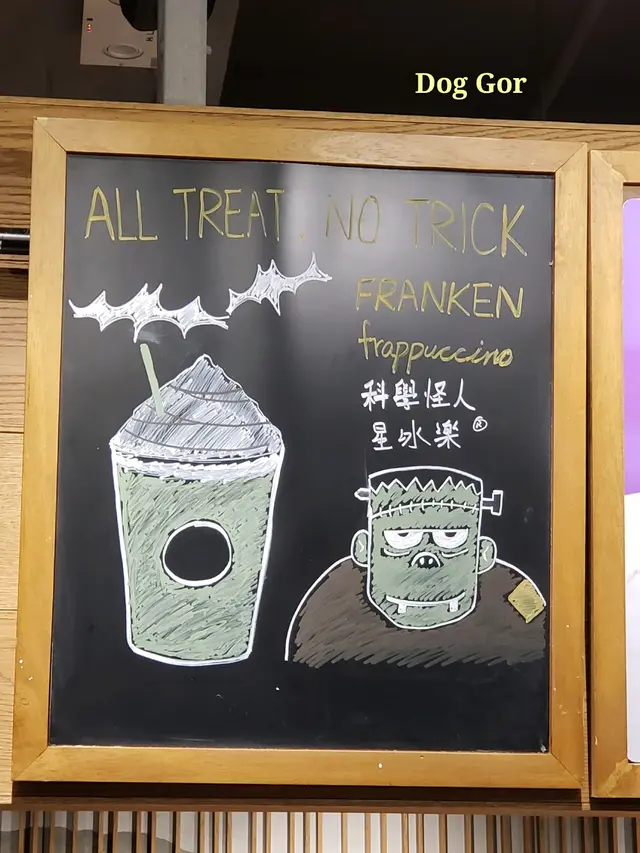 Dog Gor
ALL TREAT. NO TRICK
FRANKEN
frappuccino
科學怪人
星冰樂®